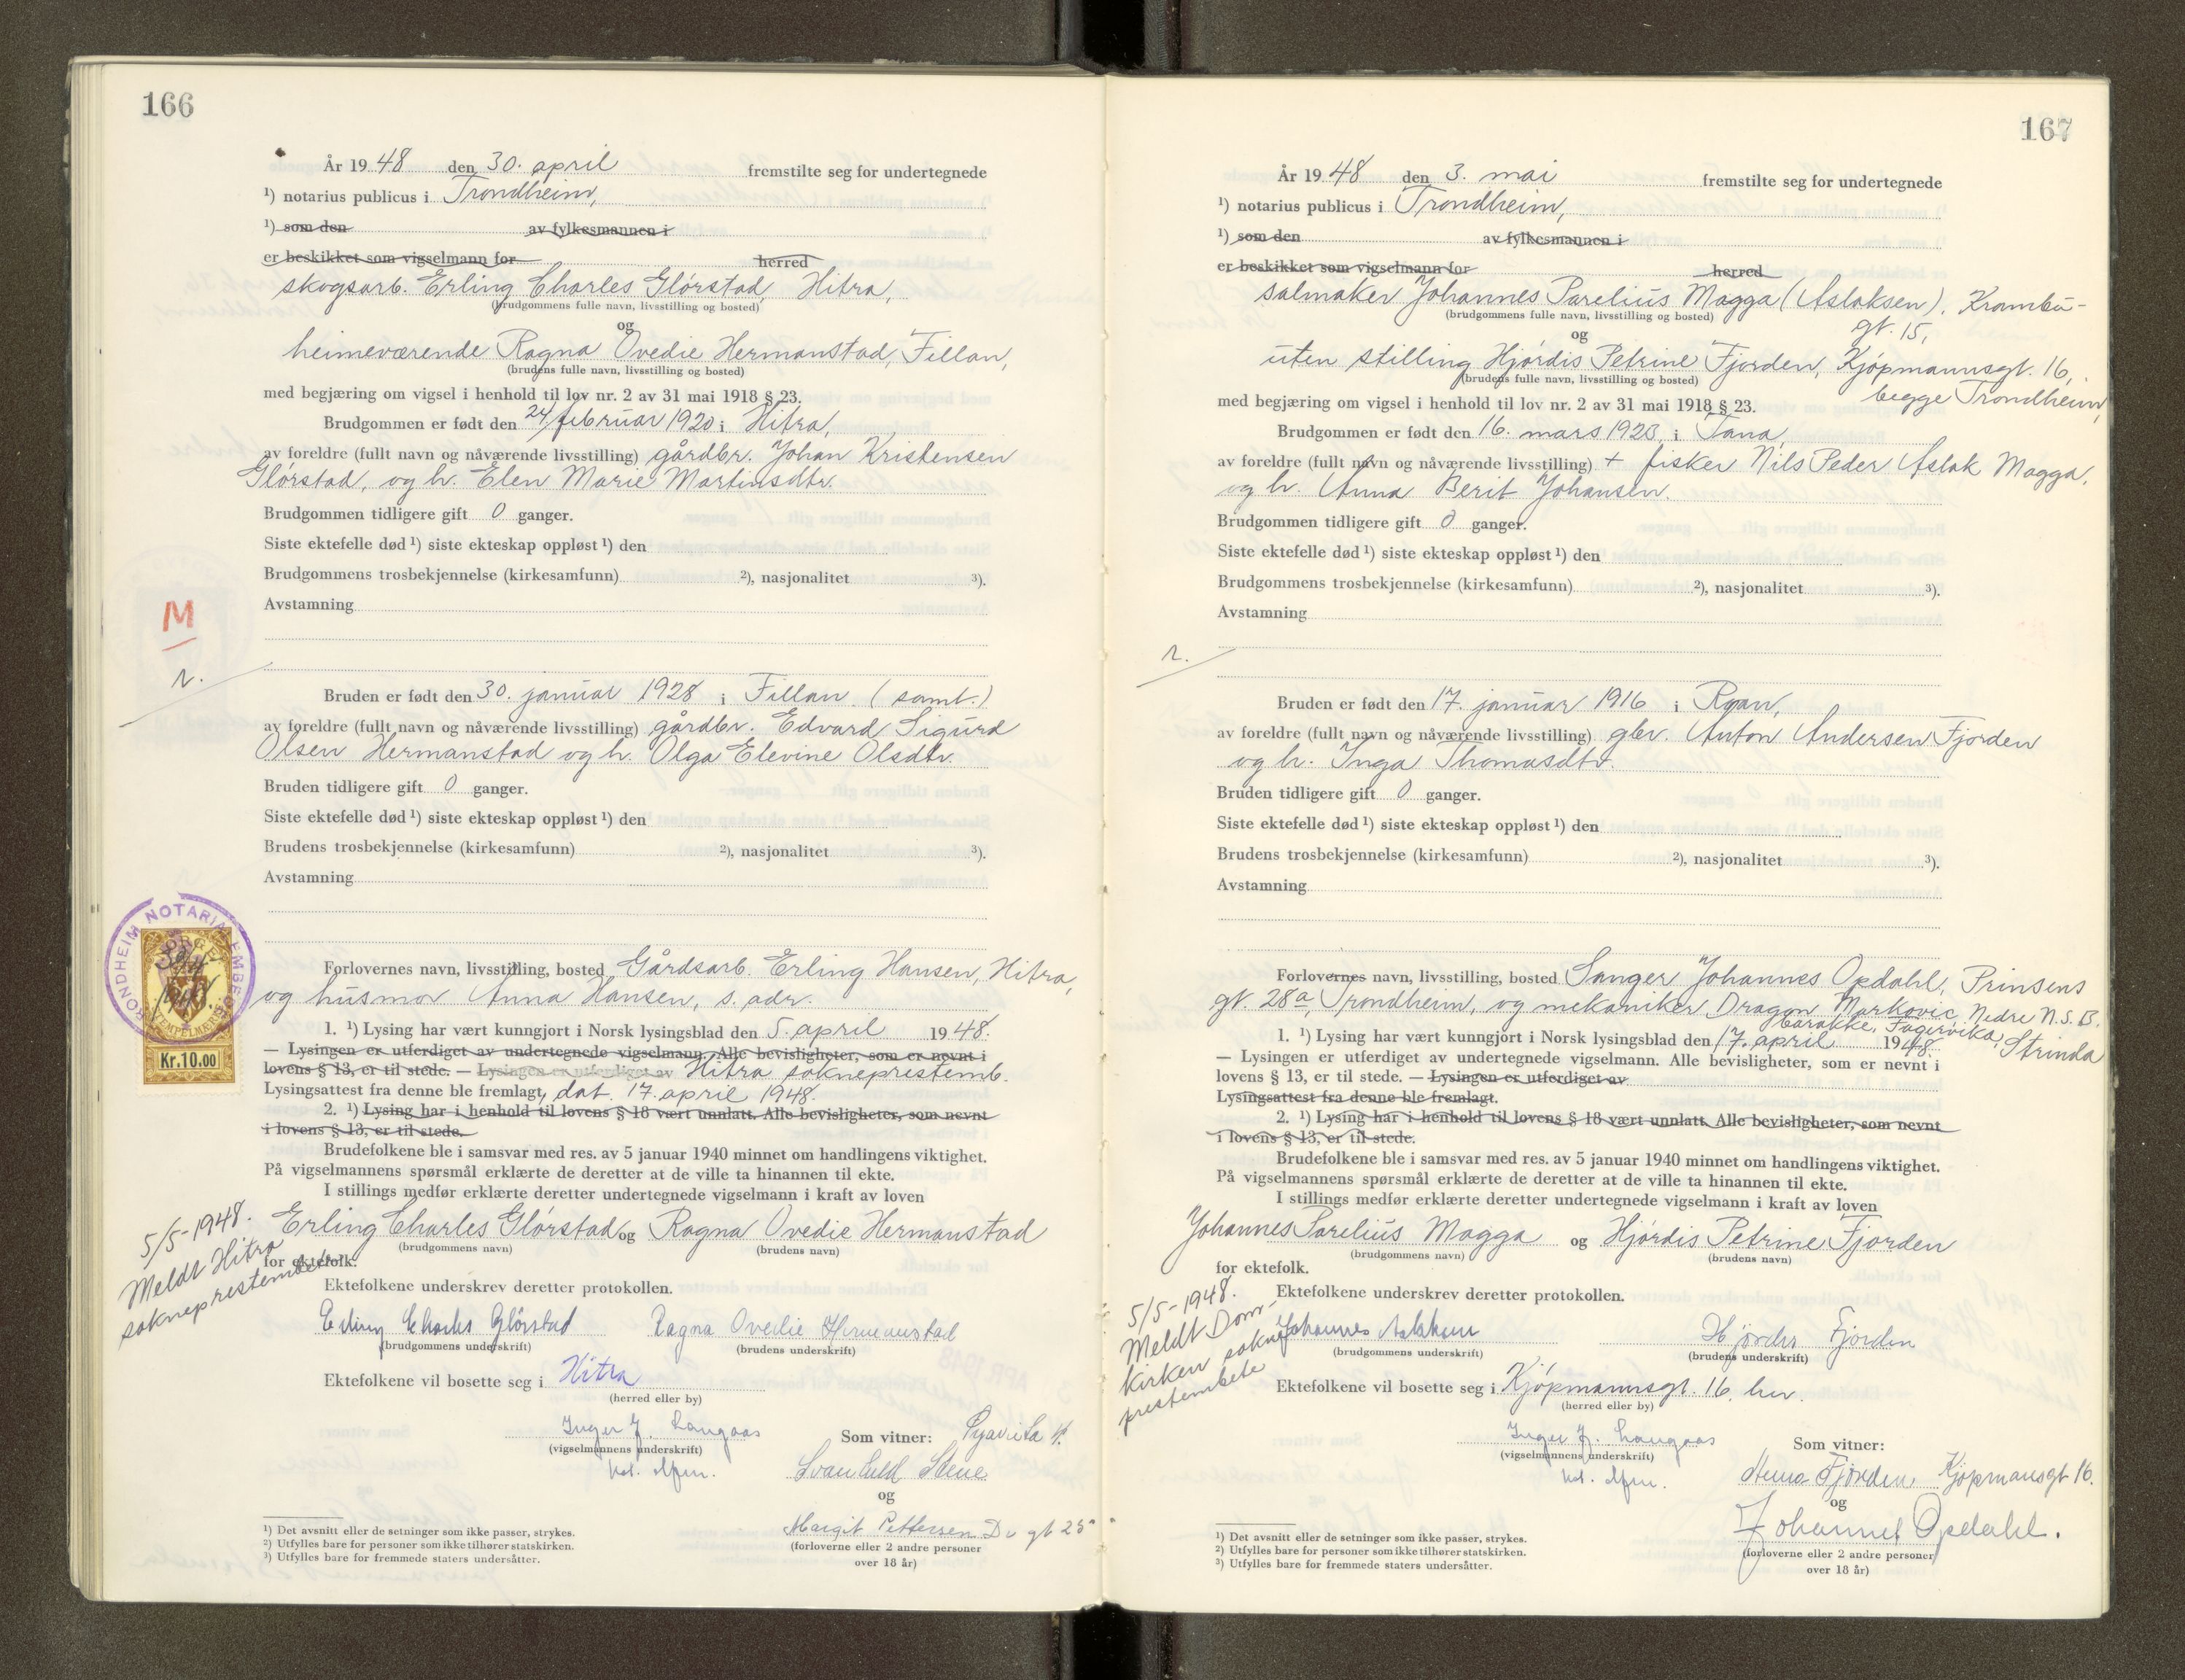 166
År 1948 den 30. april fremstilte seg for undertegnede
¹) notarius publicus i Trondheim,
¹) som den av fylkesmannen i
er beskikket som vigselmann for herred
skogsarb. Erling Charles Glørstad, Hitra,
(brudgommens fulle navn, livsstilling og bosted)
og
heimeværende Ragna Ovedie Hermanstad, Fillan,
(brudens fulle navn, livsstilling og bosted)
med begjæring om vigsel i henhold til lov nr. 2 av 31 mai 1918 § 23.
Brudgommen er født den 24/februar 1920 i Hitra,
av foreldre (fullt navn og nåværende livsstilling) gårdbr. Johan Kristensen
Glørstad, og h. Elen Marie Martinsdtr.
Brudgommen tidligere gift 0 ganger.
Siste ektefelle død ¹) siste ekteskap oppløst ¹) den
Brudgommens trosbekjennelse (kirkesamfunn) ²), nasjonalitet ³).
Avstamning
M
r.
Bruden er født den 30. januar 1928 i Fillan (samt.)
av foreldre (fullt navn og nåværende livsstilling) gårdbr. Edvard Sigurd
Olsen Hermanstad og h. Olga Elevine Olsdtr.
Bruden tidligere gift 0 ganger.
Siste ektefelle død ¹) siste ekteskap oppløst ¹) den
Brudens trosbekjennelse (kirkesamfunn) ²), nasjonalitet ³).
Avstamning
TRONDHEIM NOTARIALEMBEDE
NORGE
1948.
STEMPELMERKE
Kr.10.00
Forlovernes navn, livsstilling, bosted Gårdsarb. Erling Hansen, Hitra,
og husmor Anna Hansen, s. adr.
1. ¹) Lysing har vært kunngjort i Norsk lysingsblad den 5. april 1948.
— Lysingen er utferdiget av undertegnede vigselmann. Alle bevisligheter, som er nevnt i
lovens § 13, er til stede. — Lysingen er utferdiget av Hitra sokneprestemb.
Lysingsattest fra denne ble fremlagt, dat. 17. april 1948.
2. ¹) Lysing har i henhold til lovens § 18 vært unnlatt. Alle bevisligheter, som nevnt
i lovens § 13, er til stede.
Brudefolkene ble i samsvar med res. av 5 januar 1940 minnet om handlingens viktighet.
På vigselmannens spørsmål erklærte de deretter at de ville ta hinannen til ekte.
I stillings medfør erklærte deretter undertegnede vigselmann i kraft av loven
Erling Charles Glørstad og Ragna Ovedie Hermanstad
(brudgommens navn) (brudens navn)
for ektefolk.
5/5-1948.
Meldt Hitra
sokneprestembete.
Ektefolkene underskrev deretter protokollen.
Erling Charles Glørstad Ragna Ovedie Hermanstad
(brudgommens underskrift) (brudens underskrift)
Ektefolkene vil bosette seg i Hitra
(herred eller by)
Inger J. Langaas
(vigselmannens underskrift)
Som vitner:
Svanhild Stene
og
Margit Pettersen
(forloverne eller 2 andre personer
over 18 år)
¹) Det avsnitt eller de setninger som ikke passer, strykes.
²) Utfylles bare for personer som ikke tilhører statskirken.
³) Utfylles bare for fremmede staters undersåtter.
167
År 1948 den 3. mai fremstilte seg for undertegnede
¹) notarius publicus i Trondheim,
¹) som den av fylkesmannen i
er beskikket som vigselmann for herred
salmaker Johannes Parelius Magga (Aslaksen), Krambu-
gt. 15,
(brudgommens fulle navn, livsstilling og bosted)
og
uten stilling Hjørdis Petrine Fjorden, Kjøpmannsgt. 16,
(brudens fulle navn, livsstilling og bosted)
begge Trondheim,
med begjæring om vigsel i henhold til lov nr. 2 av 31 mai 1918 § 23.
Brudgommen er født den 16. mars 1923, i Tana,
av foreldre (fullt navn og nåværende livsstilling) + fisker Nils Peder Aslak Magga,
og h. Anna Berit Johansen.
Brudgommen tidligere gift 0 ganger.
Siste ektefelle død ¹) siste ekteskap oppløst ¹) den
Brudgommens trosbekjennelse (kirkesamfunn) ²), nasjonalitet ³).
Avstamning
r.
Bruden er født den 17. januar 1916 i Roan,
av foreldre (fullt navn og nåværende livsstilling) gbr. Anton Andersen Fjorden
og h. Inga Thomasdtr.
Bruden tidligere gift 0 ganger.
Siste ektefelle død ¹) siste ekteskap oppløst ¹) den
Brudens trosbekjennelse (kirkesamfunn) ²), nasjonalitet ³).
Avstamning
Forlovernes navn, livsstilling, bosted Sanger Johannes Opdahl, Prinsens
gt. 28a, Trondheim, og mekaniker Dragan Markovic, Nedre N.S.B.
barakke, Fagervika, Strinda
1. ¹) Lysing har vært kunngjort i Norsk lysingsblad den 17. april 1948.
— Lysingen er utferdiget av undertegnede vigselmann. Alle bevisligheter, som er nevnt i
lovens § 13, er til stede. — Lysingen er utferdiget av
Lysingsattest fra denne ble fremlagt.
2. ¹) Lysing har i henhold til lovens § 18 vært unnlatt. Alle bevisligheter, som nevnt
i lovens § 13, er til stede.
Brudefolkene ble i samsvar med res. av 5 januar 1940 minnet om handlingens viktighet.
På vigselmannens spørsmål erklærte de deretter at de ville ta hinannen til ekte.
I stillings medfør erklærte deretter undertegnede vigselmann i kraft av loven
Johannes Parelius Magga og Hjørdis Petrine Fjorden
(brudgommens navn) (brudens navn)
for ektefolk.
5/5-1948.
Meldt Dom-
kirken sokne-
prestembete
Ektefolkene underskrev deretter protokollen.
Johannes Aslaksen Hjørdis Fjorden
(brudgommens underskrift) (brudens underskrift)
Ektefolkene vil bosette seg i Kjøpmannsgt. 16, her.
(herred eller by)
Inger J. Langaas
(vigselmannens underskrift)
Som vitner:
Anna Fjorden Kjøpmansgt 16.
og
Johannes Opdahl.
(forloverne eller 2 andre personer
over 18 år)
¹) Det avsnitt eller de setninger som ikke passer, strykes.
²) Utfylles bare for personer som ikke tilhører statskirken.
³) Utfylles bare for fremmede staters undersåtter.